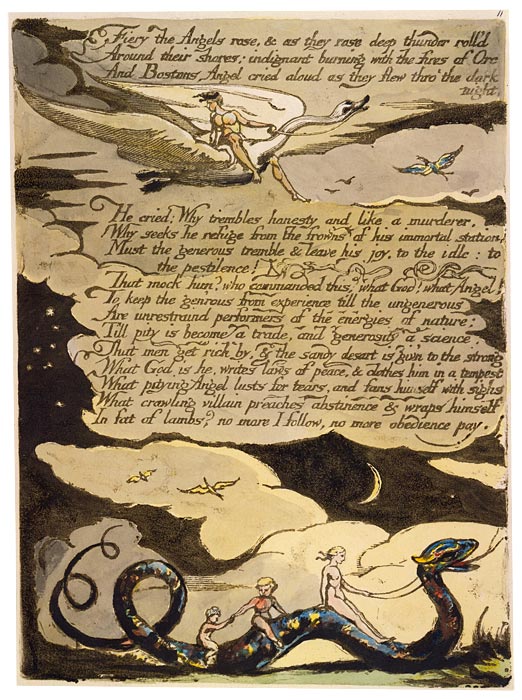 11
Fiery the Angels rose, & as they rose deep thunder roll'd
Around their shores: indignant burning with the fires of Orc
And Bostons Angel cried aloud as they flew thro' the dark
night.
He cried: Why trembles honesty and like a murderer,
Why seeks he refuge from the frowns of his immortal station!
Must the generous tremble & leave his joy, to the idle: to
the pestilence!
That mock him? who commanded this? what God! what Angel!
To keep the gen'rous from experience till the ungenerous
Are unrestraind performers of the energies of nature;
Till pity is become a trade, and generosity a science,
That men get rich by, & the sandy desart is giv'n to the strong
What God is he, writes laws of peace, & clothes him in a tempest
What pitying Angel lusts for tears, and fans himself with sighs
What crawling villain preaches abstinence & wraps himself
In fat of lambs? no more I follow, no more obedience pay.